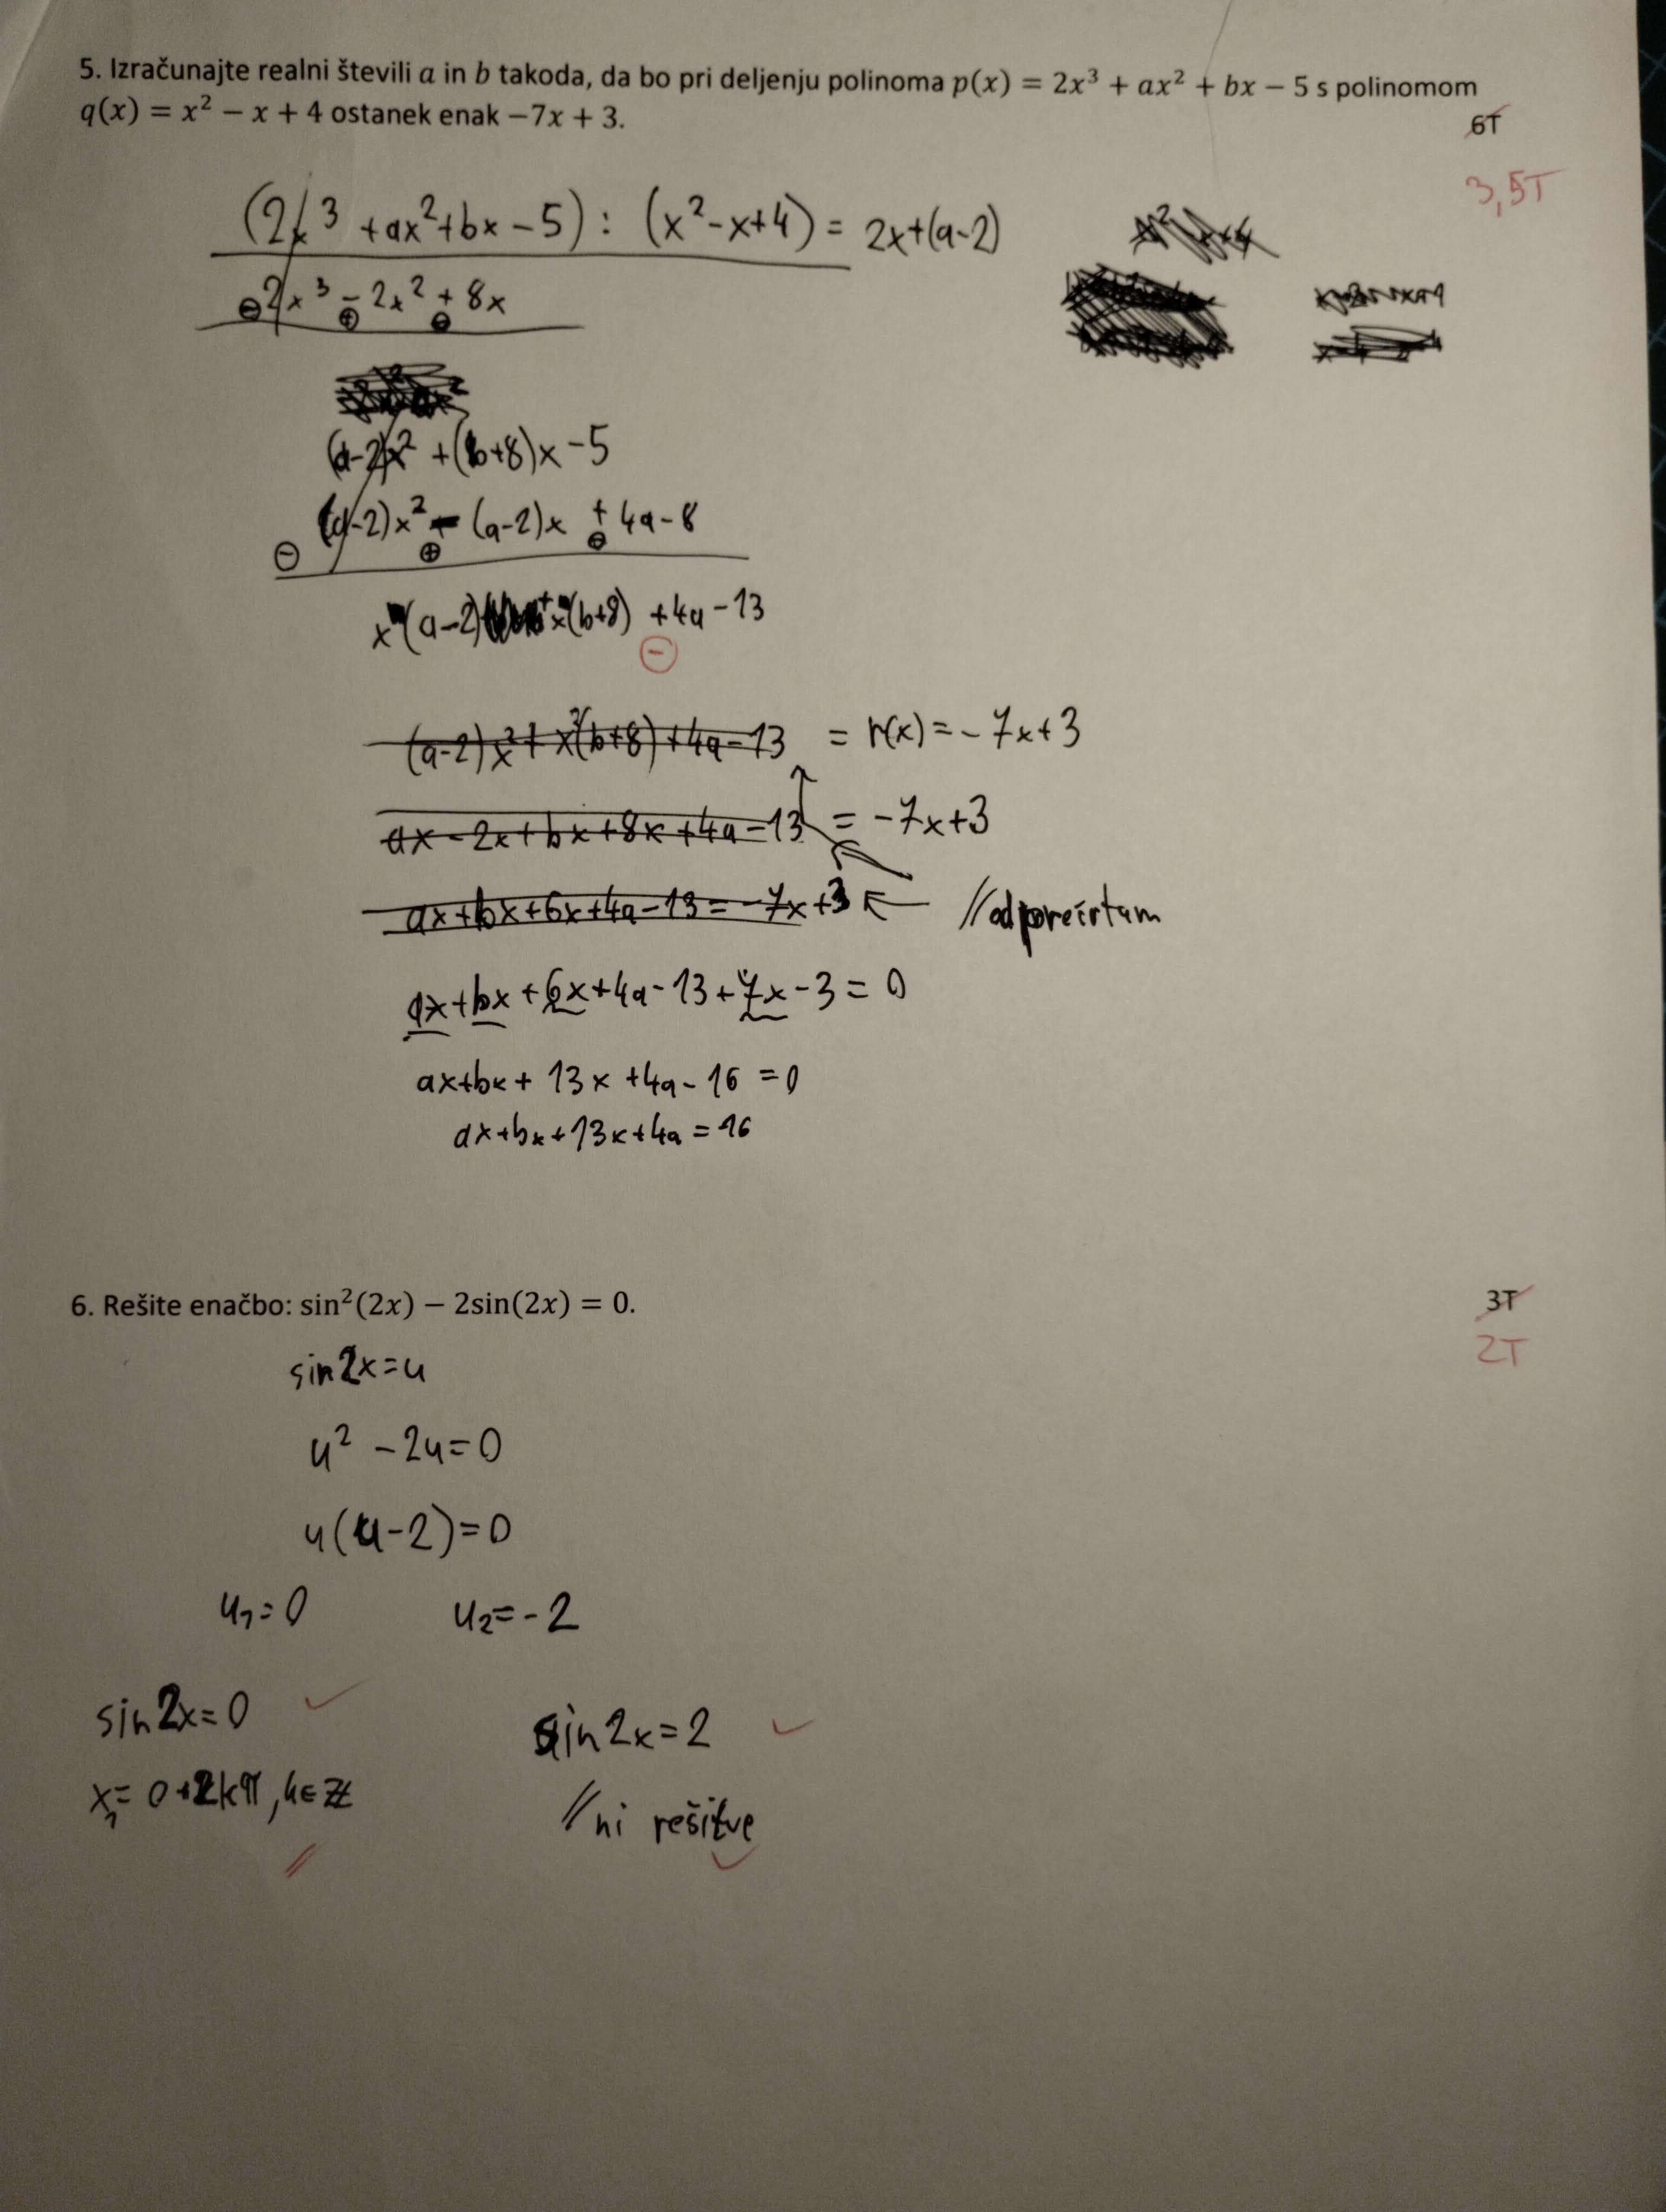 5. Izračunajte realni števili a in b takoda, da bo pri deljenju polinoma p(x) = 2x³ + ax² + bx − 5 s polinomom
q(x) = x² − x + 4 ostanek enak −7x + 3.
6T
3,5T
(2x³ + ax² + bx − 5) : (x² − x + 4) = 2x + (a−2)
⊖ 2x³ − 2x² + 8x
⊕ ⊖
(a−2)x² + (b+8)x − 5
(a−2)x² − (a−2)x + 4a − 8
⊖ ⊕ ⊖
x(a−2) + x(b+8) + 4a − 13
⊖
(a−2)x² + x²(b+8) + 4a − 13 = r(x) = − 7x + 3
ax − 2x + bx + 8x + 4a − 13 = − 7x + 3
ax + bx + 6x + 4a − 13 = − 7x + 3 ← //odprečrtam
ax + bx + 6x + 4a − 13 + 7x − 3 = 0
ax + bx + 13x + 4a − 16 = 0
ax + bx + 13x + 4a = 16
6. Rešite enačbo: sin²(2x) − 2sin(2x) = 0.
3T
2T
sin2x = u
u² − 2u = 0
u(u−2) = 0
u₁ = 0 u₂ = −2
sin2x = 0 ✓ sin2x = 2 ✓
x₁ = 0 + 2kπ, k∈ℤ //ni rešitve ✓